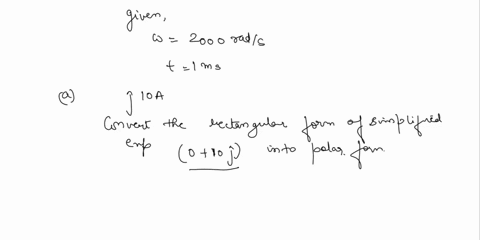 given,
ω = 2000 rad/s
t = 1 ms
(a) j 10A
Convert the rectangular form of simplified
exp (0 + 10 j) into polar form